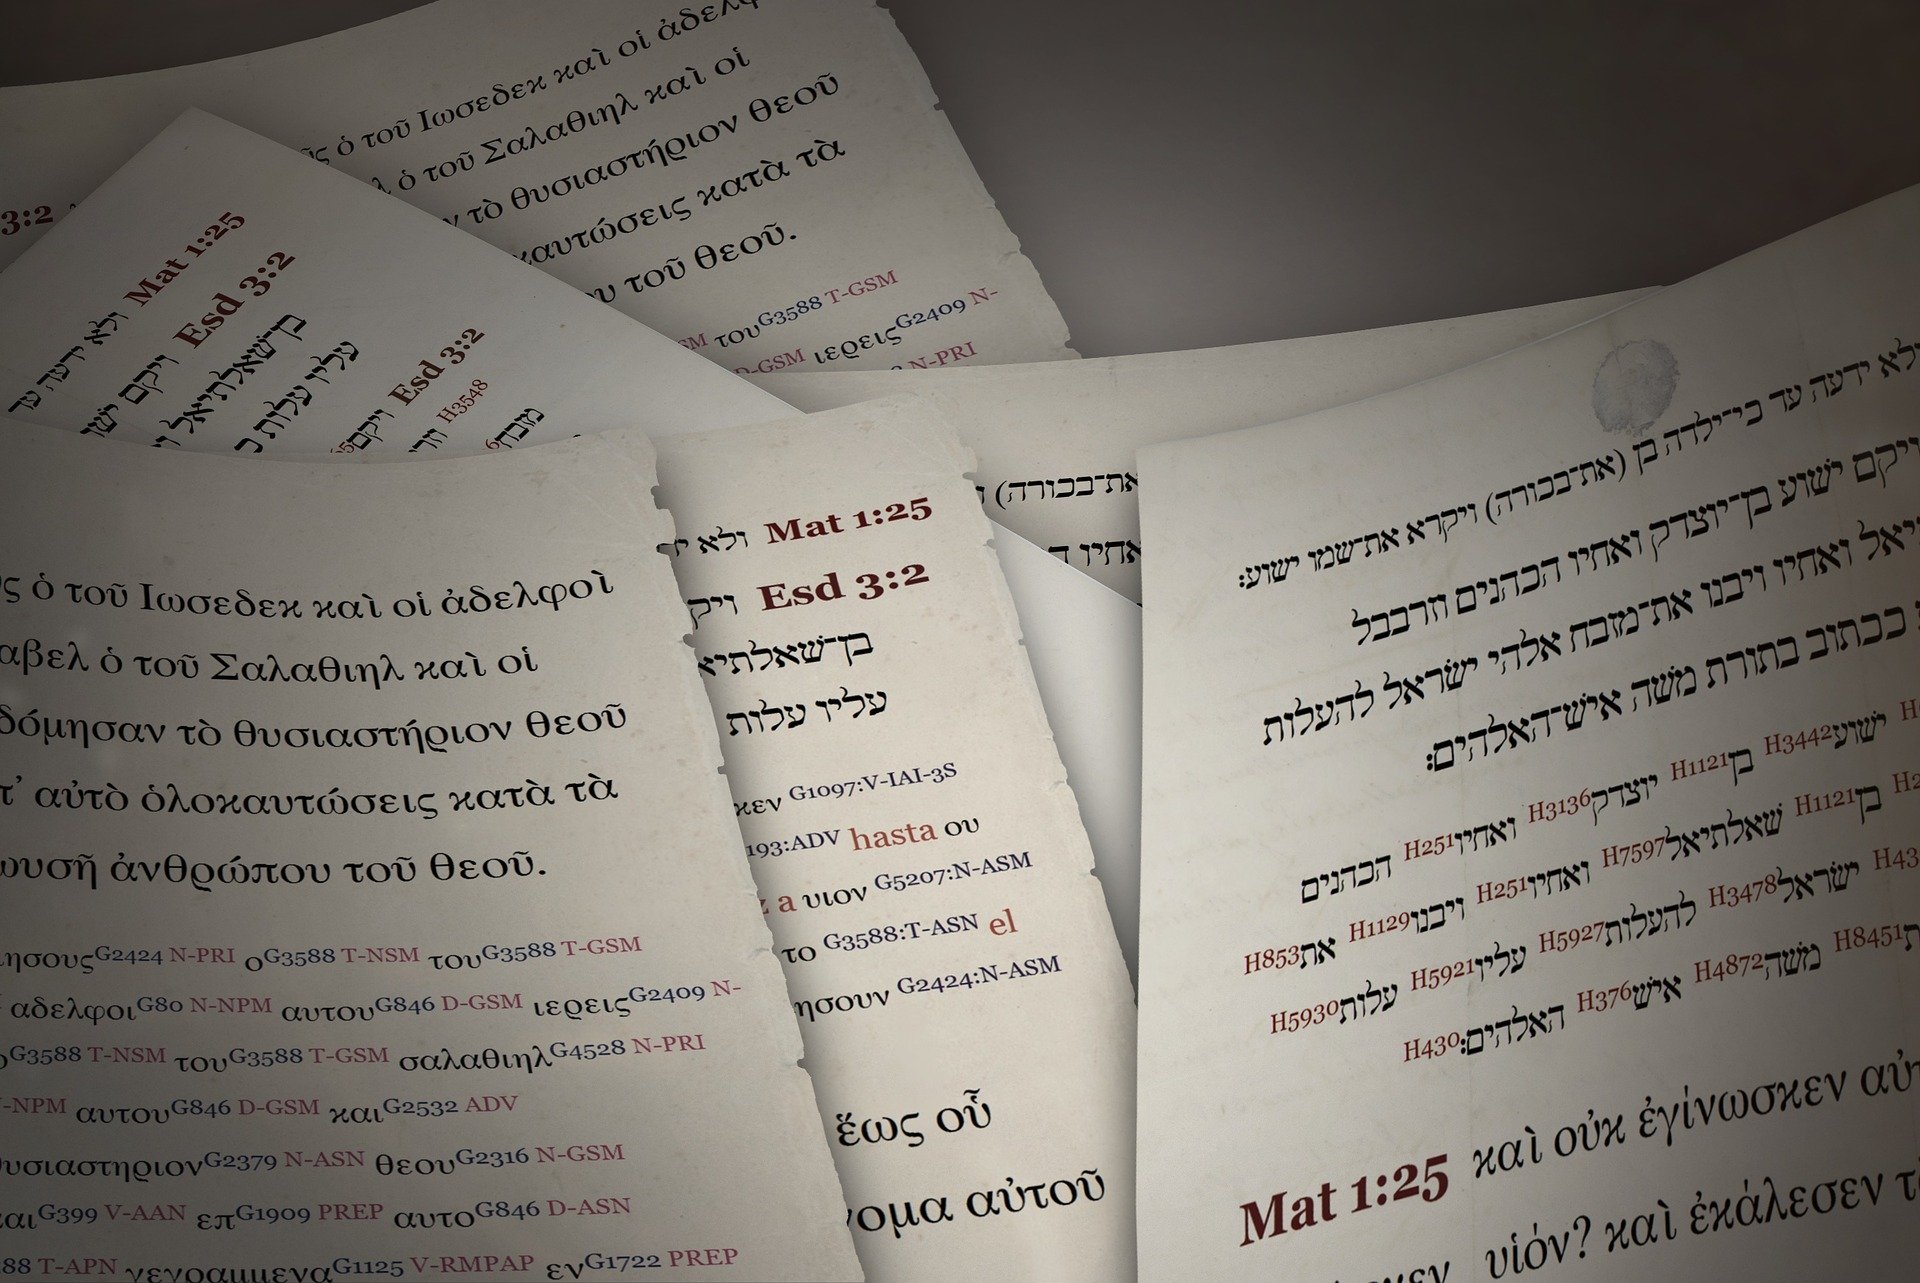 ὁ τοῦ Ιωσεδεκ καὶ οἱ
ὁ τοῦ Σαλαθιηλ καὶ οἱ
τὸ θυσιαστήριον θεοῦ
κατὰ τὰ
τοῦ θεοῦ.
τουG3588 T-GSM
D-GSM ιερειςG2409 N-
N-PRI
3:2
Mat 1:25 ולא ידעה עד
Esd 3:2 ויקם
בן־שאלתיאל
עליו עלות
Esd 3:2 ויקם
H3548
מזבח
ὁ τοῦ Ιωσεδεκ καὶ οἱ ἀδελφοὶ
ὁ τοῦ Σαλαθιηλ καὶ οἱ
τὸ θυσιαστήριον θεοῦ
αὐτὸ ὁλοκαυτώσεις κατὰ τὰ
ἀνθρώπου τοῦ θεοῦ.
G2424 N-PRI οG3588 T-NSM τουG3588 T-GSM
αδελφοιG80 N-NPM αυτουG846 D-GSM ιερειςG2409 N-
G3588 T-NSM τουG3588 T-GSM σαλαθιηλG4528 N-PRI
-NPM αυτουG846 D-GSM καιG2532 ADV
G2379 N-ASN θεουG2316 N-GSM
G399 V-AAN επG1909 PREP αυτοG846 D-ASN
T-APN γεγραμμεναG1125 V-RMPAP ενG1722 PREP
Mat 1:25 ולא
Esd 3:2
בן־שאלתיא
עליו עלות
G1097:V-IAI-3S
193:ADV hasta ου
a υιον G5207:N-ASM
το G3588:T-ASN el
G2424:N-ASM
ἕως οὗ
αὐτοῦ
את־בכורה)
אחיו
ולא ידעה עד כי־ילדה בן (את־בכורה) ויקרא את־שמו ישוע:
ויקם ישוע בן־יוצדק ואחיו הכהנים וזרבבל
ואחיו ויבנו את־מזבח אלהי ישראל להעלות
ככתוב בתורת משה איש־האלהים:
ישועH3442 בןH1121 יוצדקH3136 ואחיוH251 הכהנים
בןH1121 שאלתיאלH7597 ואחיוH251 ויבנוH1129 אתH853
ישראלH3478 להעלותH5927 עליוH5921 עלותH5930
H8451 משהH4872 אישH376 האלהים:H430
Mat 1:25 καὶ οὐκ ἐγίνωσκεν
υἱόν? καὶ ἐκάλεσεν